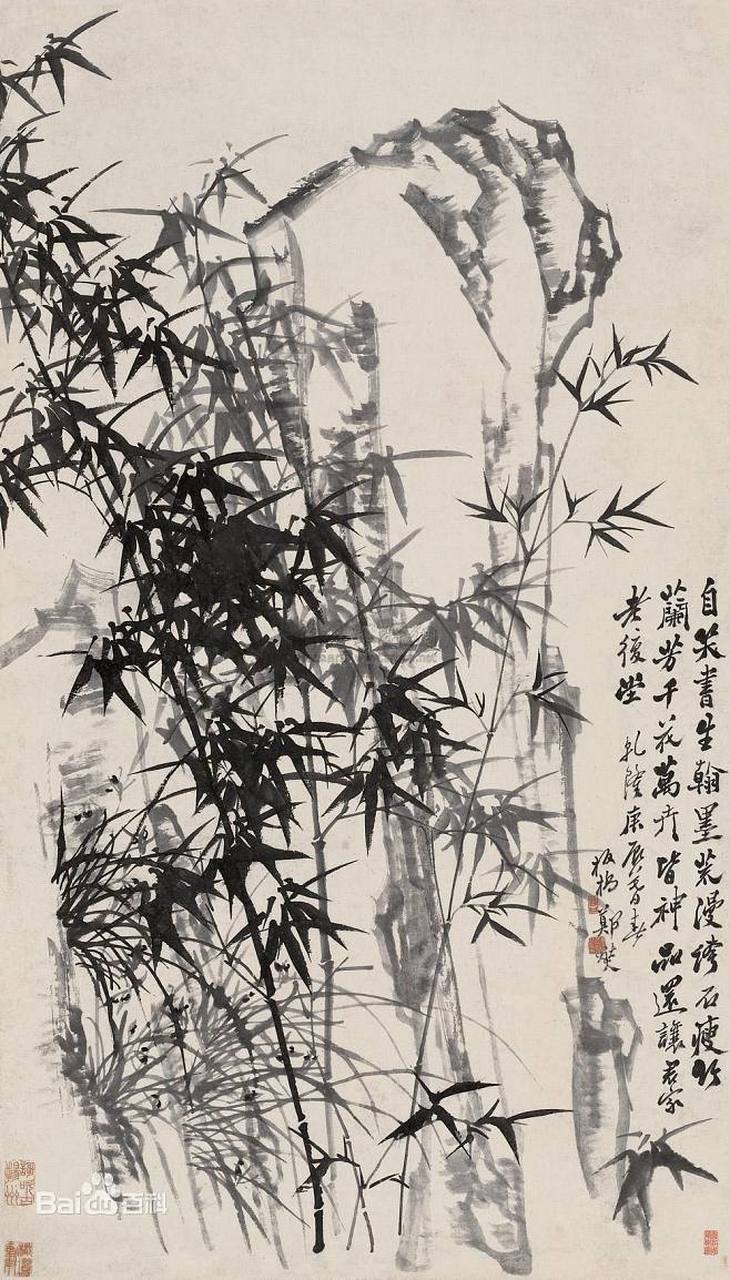 自笑書生翰墨荒漫誇石瘦竹
蘭芳千花萬卉皆神品還讓君家
老復堂 乾隆庚辰暮春
板橋鄭燮
Bai du 百科